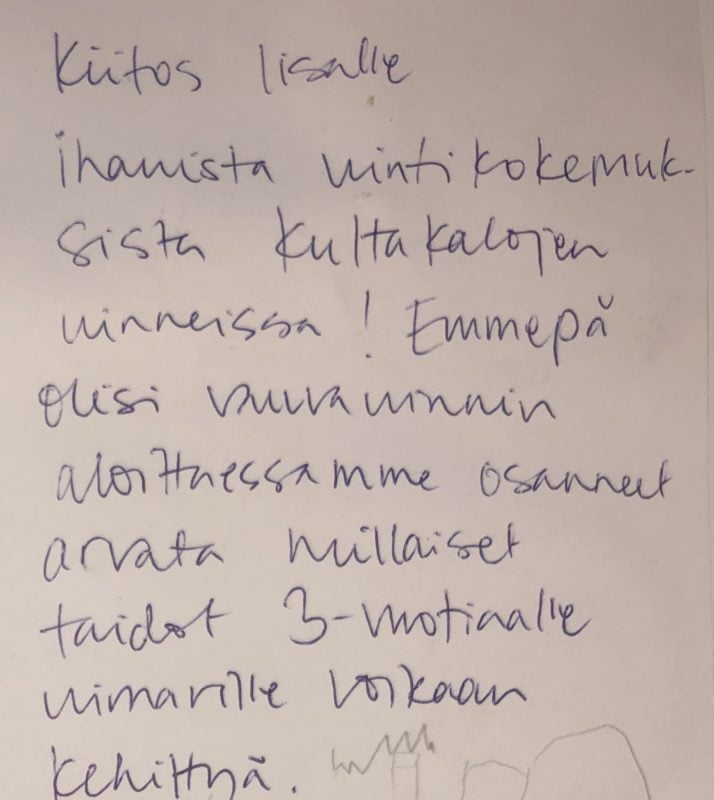 Kiitos Iisalle
ihanista uintikokemuk-
sista Kultakalojen
uinneissa! Emmepä
olisi vauvauinnin
aloittaessamme osanneet
arvata millaiset
taidot 3-vuotiaalle
uimarille voikaan
kehittyä.